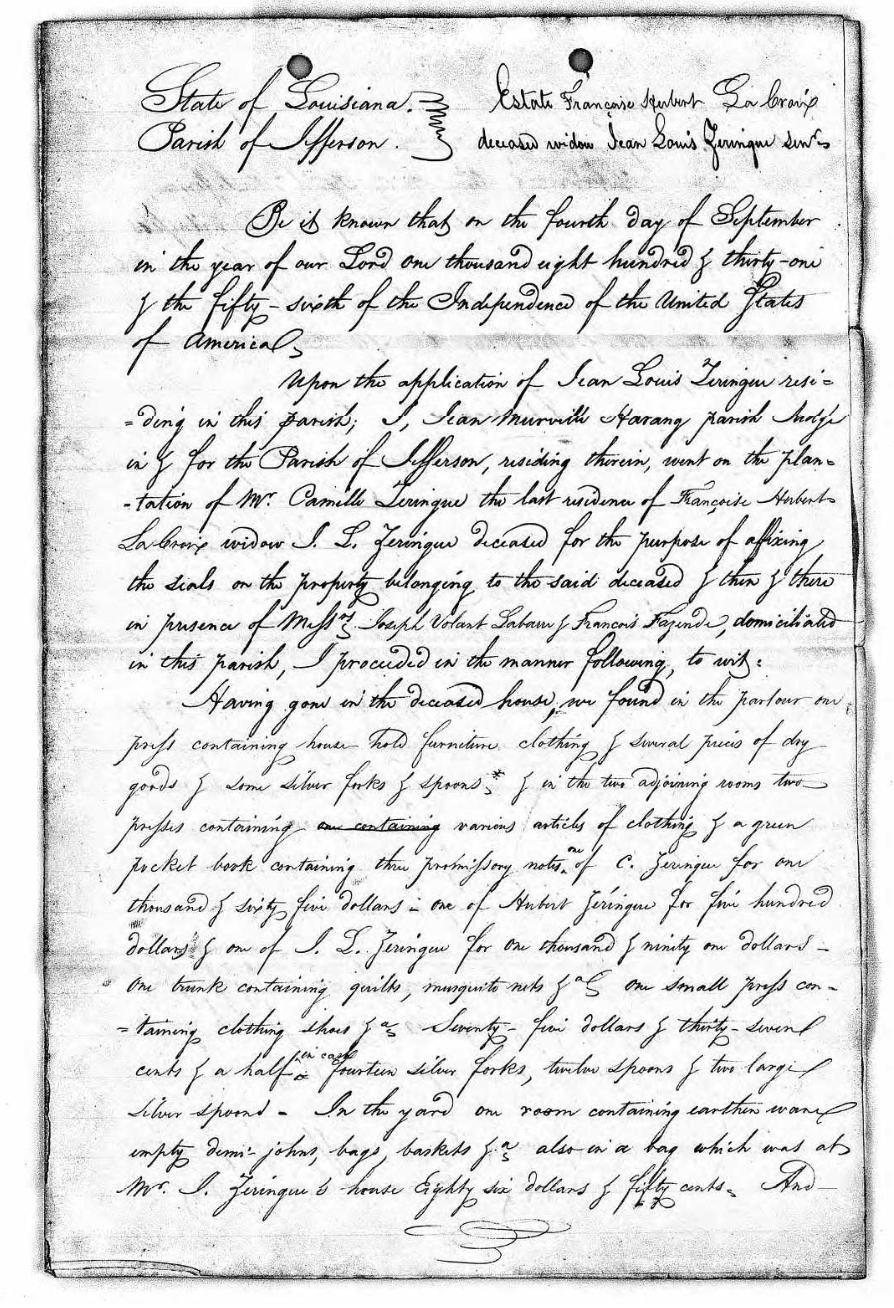 State of Louisiana. Estate Françoise Hubert La Croix
Parish of Jefferson. deceased widow Jean Louis Zeringue senr
Be it known that on the fourth day of September
in the year of our Lord one thousand eight hundred & thirty-one
& the fifty-sixth of the Independence of the United States
of America,
Upon the application of Jean Louis Zeringue resi=
=ding in this parish; I, Jean Murville Harang parish Judge
in & for the Parish of Jefferson, residing therein, went on the plan=
-tation of Mr. Camille Zeringue the last residence of Françoise Hubert
La Croix widow J. L. Zeringue deceased for the purpose of affixing
the seals on the property belonging to the said deceased & then & there
in presence of Messrs Joseph Volant Labarre & Francois Fazende, domiciliated
in this parish, I proceeded in the manner following, to wit:
Having gone in the deceased house, we found in the parlour one
press containing house hold furniture clothing & several pieces of dry
goods & some silver forks & spoons,* & in the two adjoining rooms two
presses containing one containing various articles of clothing & a green
pocket book containing three promissory notes, one of C. Zeringue for one
thousand & sixty five dollars - one of Hubert Zéringue for five hundred
dollars & one of J. L. Zeringue for one thousand & ninety one dollars -
One trunk containing quilts, musquito nets &a one small press con-
=taining clothing shoes &a Seventy-five dollars & thirty-seven
cents & a half in cash fourteen silver forks, twelve spoons & two large
silver spoons - In the yard one room containing earthen ware
empty demi-johns, bags, baskets &a also in a bag which was at
Mr. J. Zeringue's house Eighty six dollars & fifty cents. And